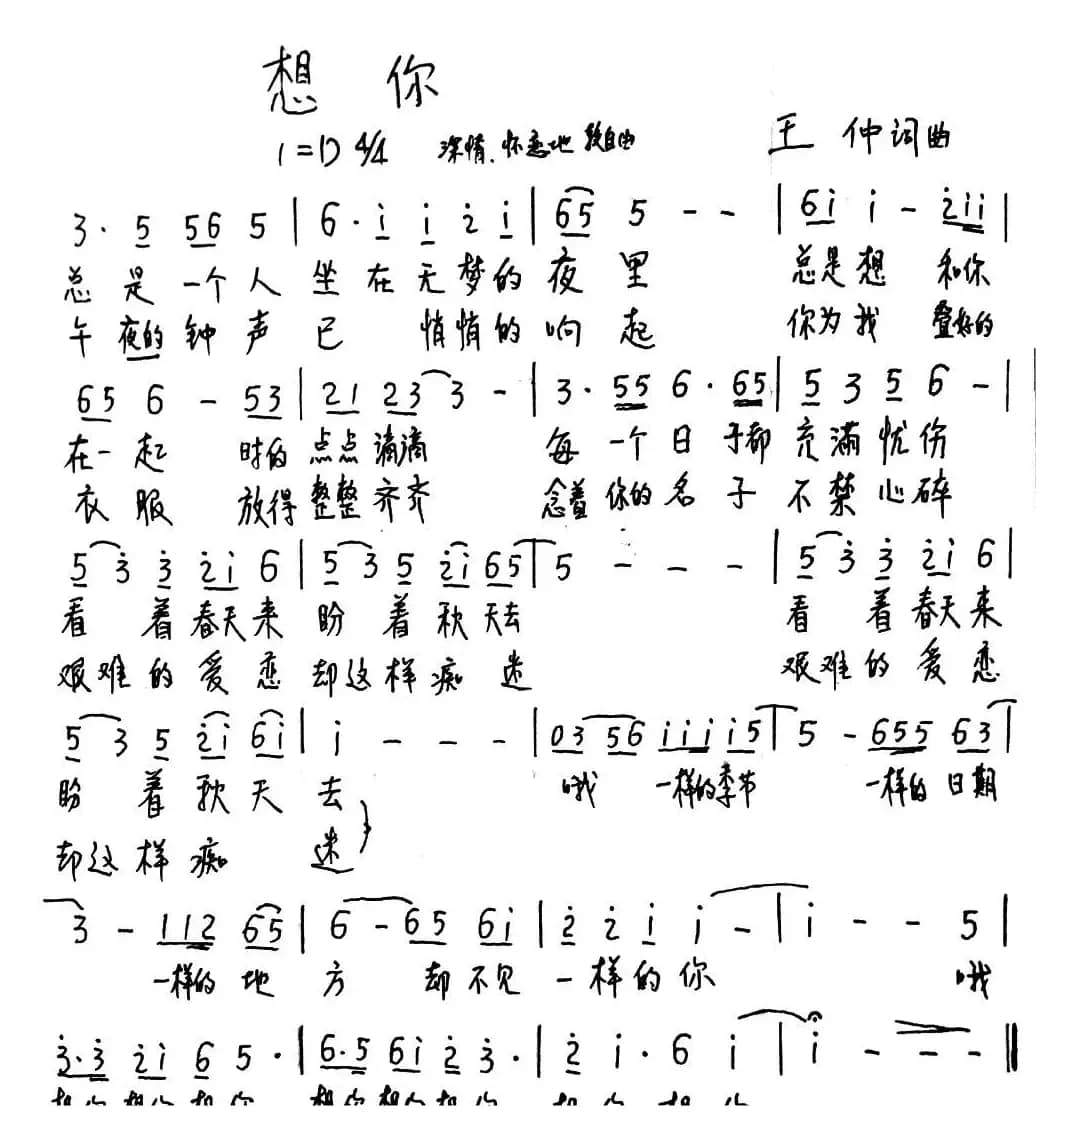 想 你
1=D 4/4 深情、怀恋地 较自由 王 仲词曲
3· 5 56 5 | 6· i i 2 i | 65 5 - - | 6i i - 2ii |
总是一个人坐在无梦的夜里 总是想 和你
午夜的钟声已 悄悄的响起 你为我 叠好的
65 6 - 53 | 21 23 3 - | 3· 55 6· 65 | 5 3 5 6 - |
在一起 时的点点滴滴 每一个日子都充满忧伤
衣服 放得整整齐齐 念着你的名子不禁心碎
5 3 3 2i 6 | 5 3 5 2i 65 | 5 - - - | 5 3 3 2i 6 |
看着春天来 盼着秋天去 看着春天来
艰难的爱恋 却这样痴迷 艰难的爱恋
5 3 5 2i 6i | i - - - | 03 56 iii i5 | 5 - 655 63 |
盼着秋天去 哦 一样的季节 一样的日期
却这样痴迷
3 - 112 65 | 6 - 65 6i | 2 2 i i - | i - - 5 |
一样的地方 却不见一样的你 哦
3·3 2i 6 5· | 6·5 6i 2 3· | 2 i· 6 i | i - - - ‖